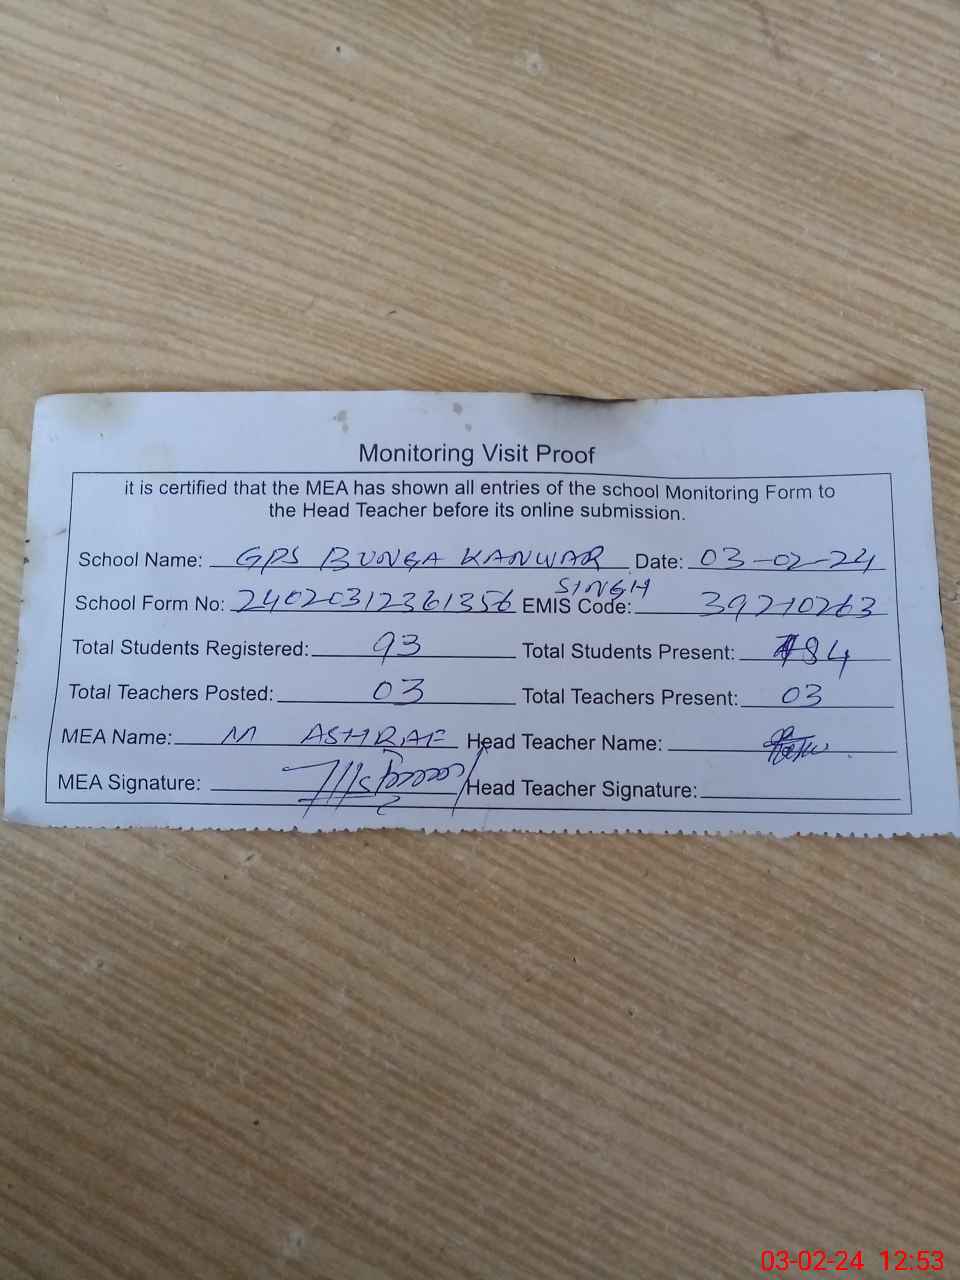 Monitoring Visit Proof
it is certified that the MEA has shown all entries of the school Monitoring Form to
the Head Teacher before its online submission.
School Name: GPS BUNGA KANWAR SINGH Date: 03-02-24
School Form No: 24020312361356 EMIS Code: 39210263
Total Students Registered: 93 Total Students Present: 84
Total Teachers Posted: 03 Total Teachers Present: 03
MEA Name: M ASHRAF Head Teacher Name:
MEA Signature: Head Teacher Signature:
03-02-24 12:53